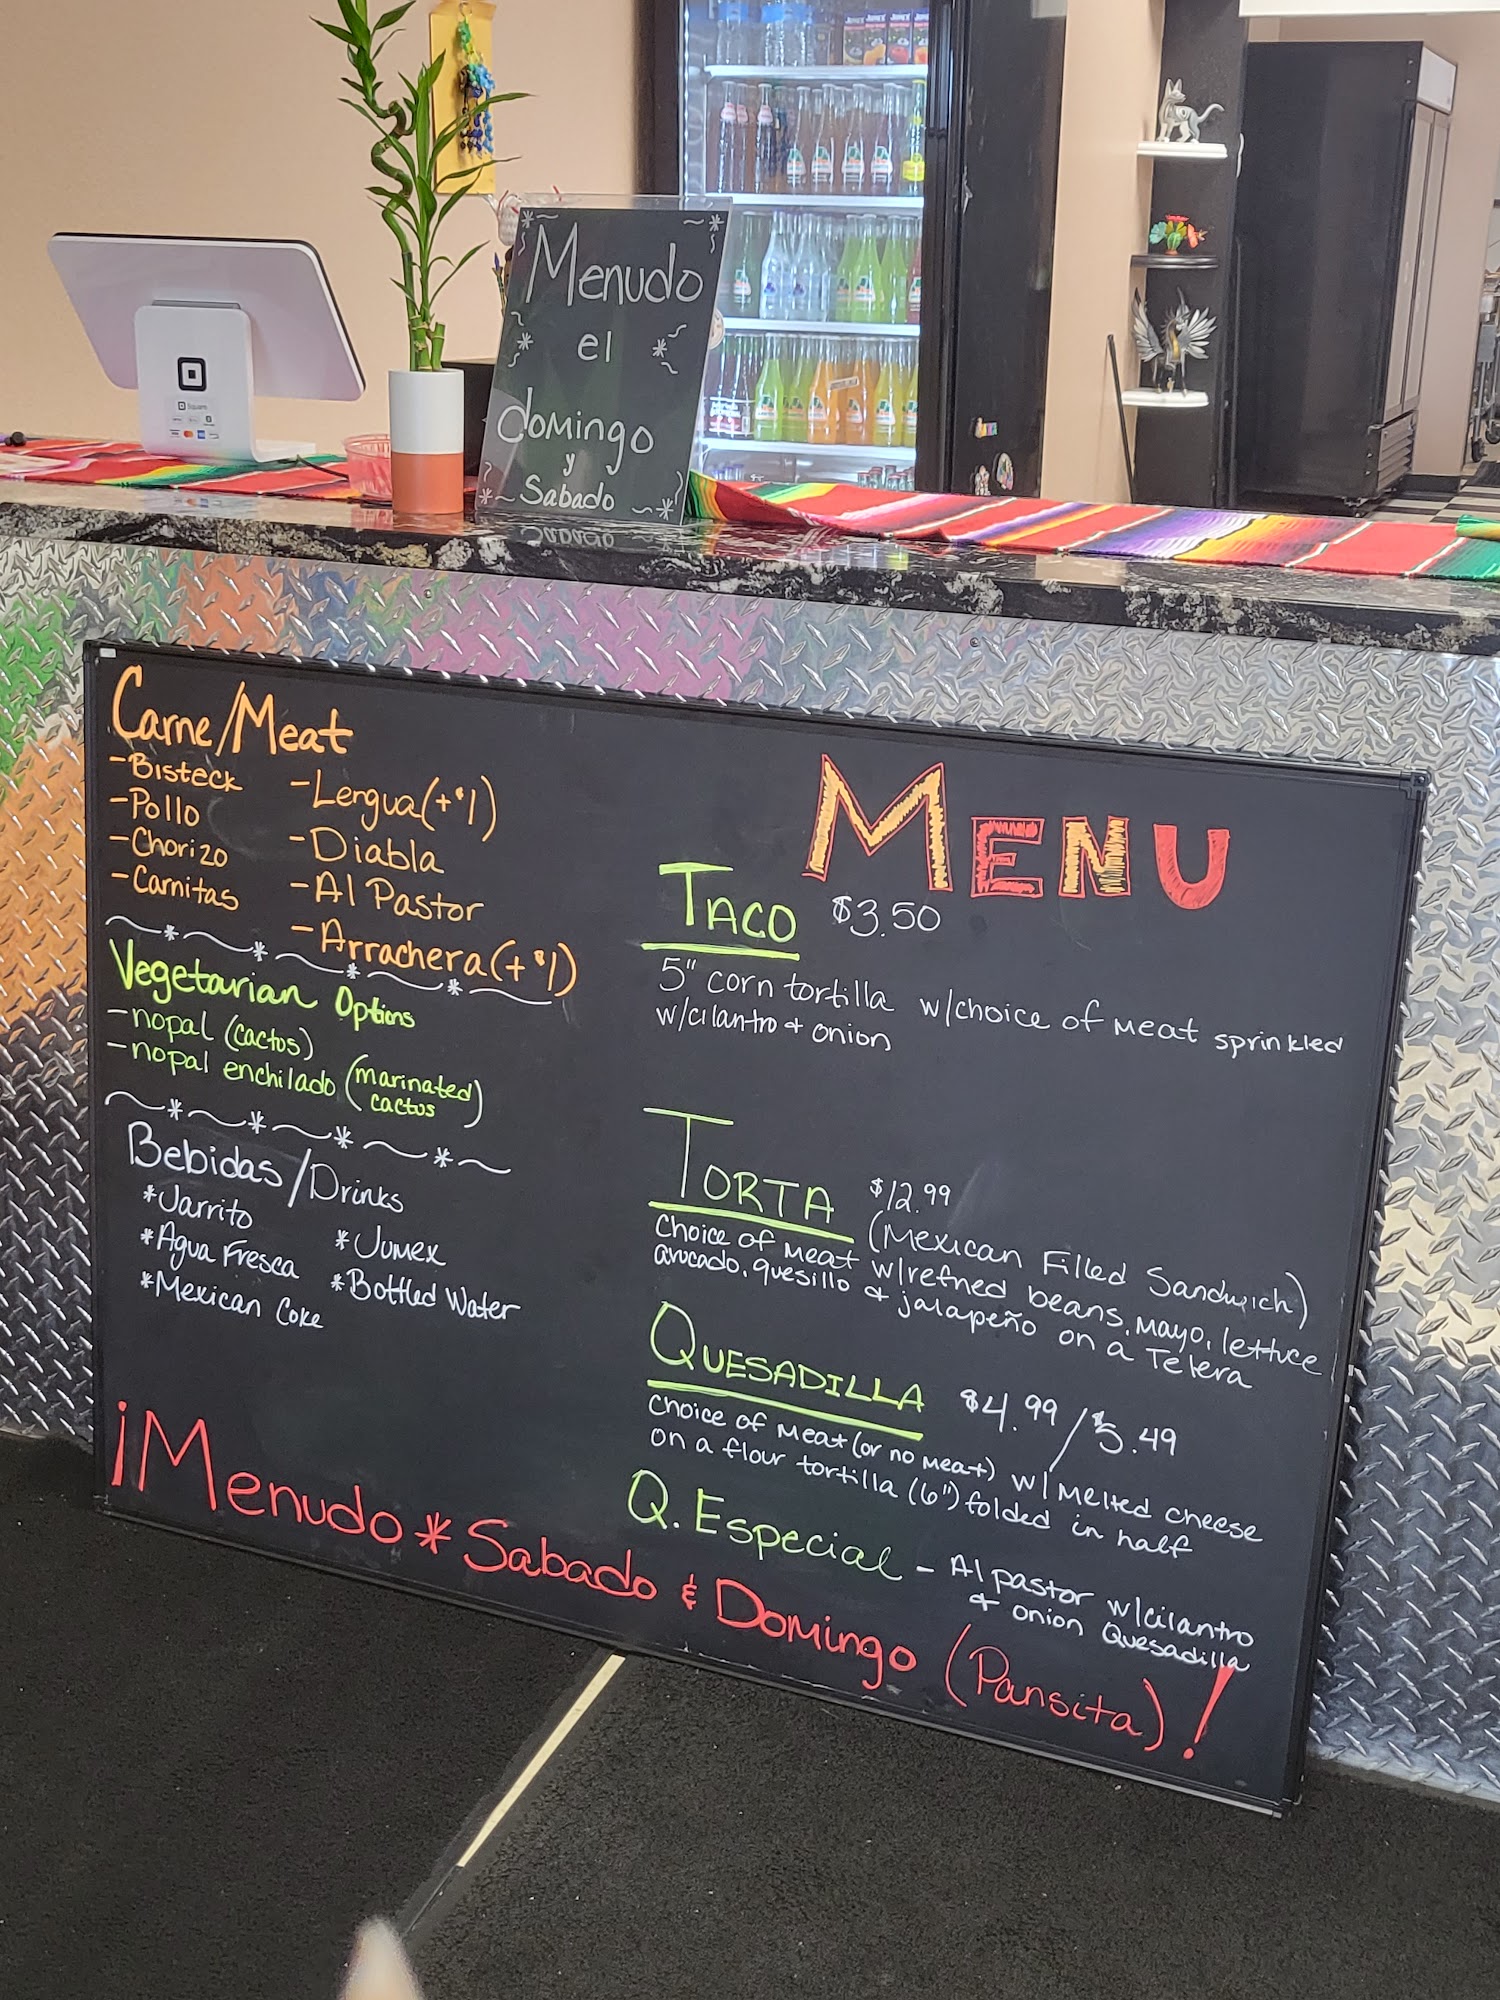 Menudo
el
domingo
y
Sabado
Square
Carne/Meat
-Bisteck
-Pollo
-Chorizo
-Carnitas
-Lengua(+$1)
-Diabla
-Al Pastor
-Arrachera(+$1)
Vegetarian Options
-nopal (cactos)
-nopal enchilado (marinated
cactus)
Bebidas/Drinks
*Jarrito
*Agua Fresca
*Mexican Coke
*Jumex
*Bottled Water
MENU
TACO $3.50
5" corn tortilla w/choice of meat sprinkled
w/cilantro & onion
TORTA $12.99
(Mexican Filled Sandwich)
Choice of meat w/refried beans, mayo, lettuce
avocado, quesillo & jalapeño on a Telera
QUESADILLA $4.99/$5.49
Choice of meat (or no meat) w/ melted cheese
on a flour tortilla (6") folded in half
Q. Especial - Al pastor w/cilantro
& onion Quesadilla
¡Menudo * Sabado & Domingo (Pansita)!